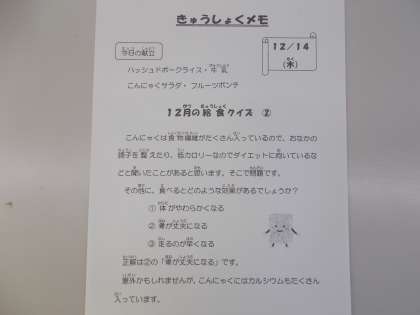 きゅうしょくメモ
今日の献立
12/14
(木)
ハッシュドポークライス・牛乳
こんにゃくサラダ・フルーツポンチ
12月の給食クイズ ②
こんにゃくは食物繊維がたくさん入っているので、おなかの
調子を整えたり、低カロリーなのでダイエットに向いているな
どと聞いたことがあると思います。そこで問題です。
その他に、食べるとどのような効果があるでしょうか?
① 体がやわらかくなる
② 骨が丈夫になる
③ 走るのが早くなる
正解は②の「骨が丈夫になる」です。
意外かもしれませんが、こんにゃくにはカルシウムもたくさん
入っています。